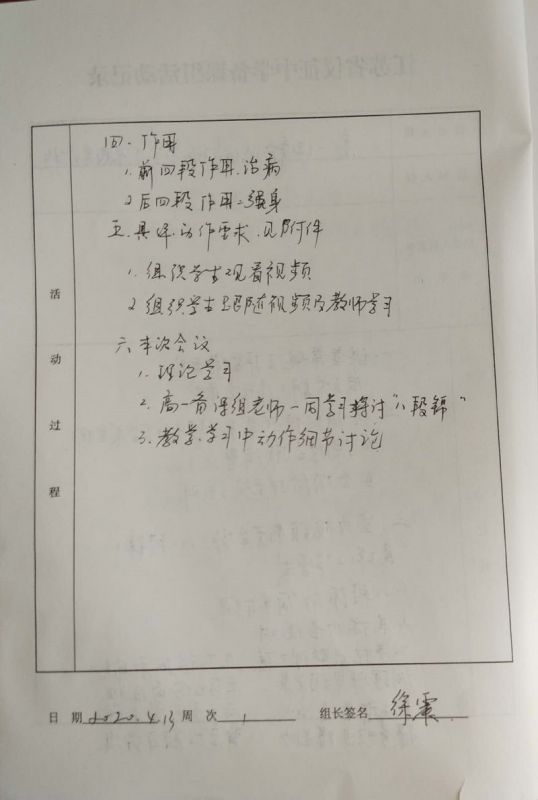 四、作用
1. 前四段作用、治病
2 后四段作用：强身
五、具体动作要求、见附件
1. 组织学生观看视频
2. 组织学生跟随视频及教师学习
六、本次会议
1. 理论学习
2. 高一备课组老师一同学习研讨"八段锦"
3. 教学、学习中动作细节讨论
活
动
过
程
日 期 2020.4.13 周 次 1 组长签名 徐震